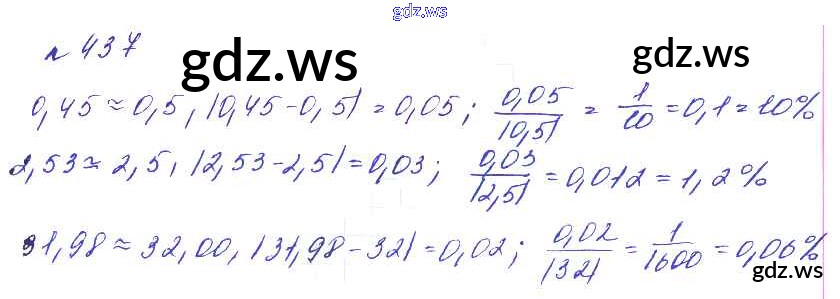 gdz.ws
№ 437
gdz.ws
gdz.ws
0,45 ≈ 0,5, |0,45 - 0,5| = 0,05; 0,05/|0,5| = 1/10 = 0,1 = 10%
2,53 ≈ 2,5, |2,53 - 2,5| = 0,03; 0,03/|2,5| = 0,012 = 1,2%
31,98 ≈ 32,00, |31,98 - 32| = 0,02; 0,02/|32| = 1/1600 = 0,06%
gdz.ws